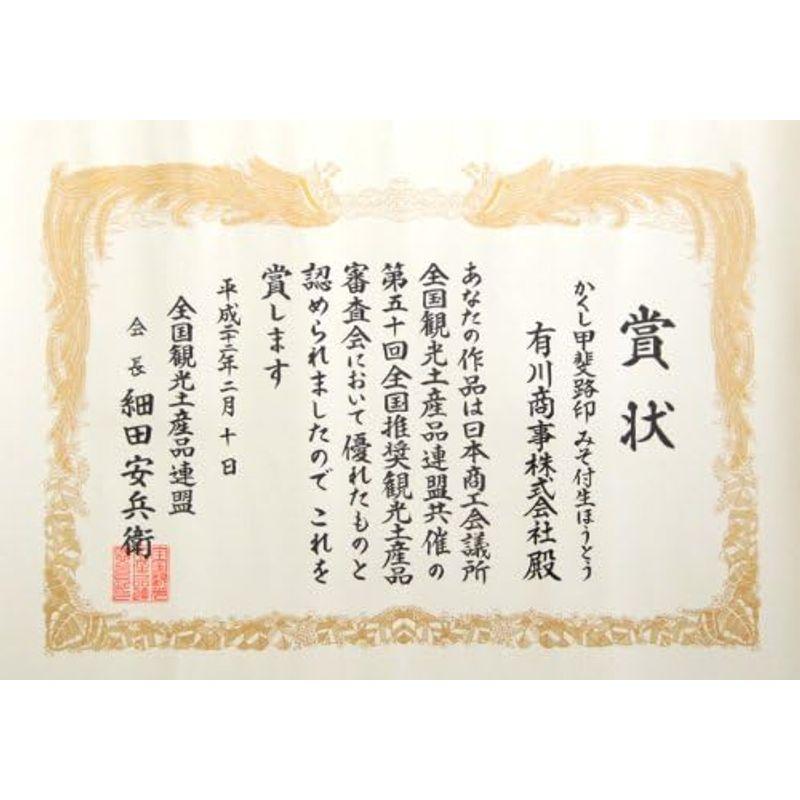 賞状
かくし甲斐路印みそ付生ほうとう
有川商事株式会社殿
あなたの作品は日本商工会議所
全国観光土産品連盟共催の
第五十回全国推奨観光土産品
審査会において優れたものと
認められましたのでこれを
賞します
平成二十二年二月十日
全国観光土産品連盟
会長 細田安兵衛